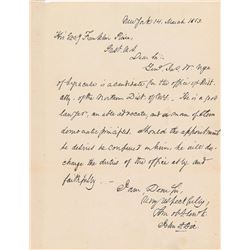 New York 14. March 1853.
His Exc'y Franklin
Prest. U.S.
Dear Sir:
Genl. W. Nye
of Syracuse is a candidate for the office of Dist.
atty. of the Northern Dist. of N.Y. He is a good
lawyer, an able advocate, and a man of
principles. Should the appointment
he desires be conferred on him, he will dis-
charge the duties of the office ably and
faithfully.
I am, Dear Sir,
Very respectfully,
John A. Dix